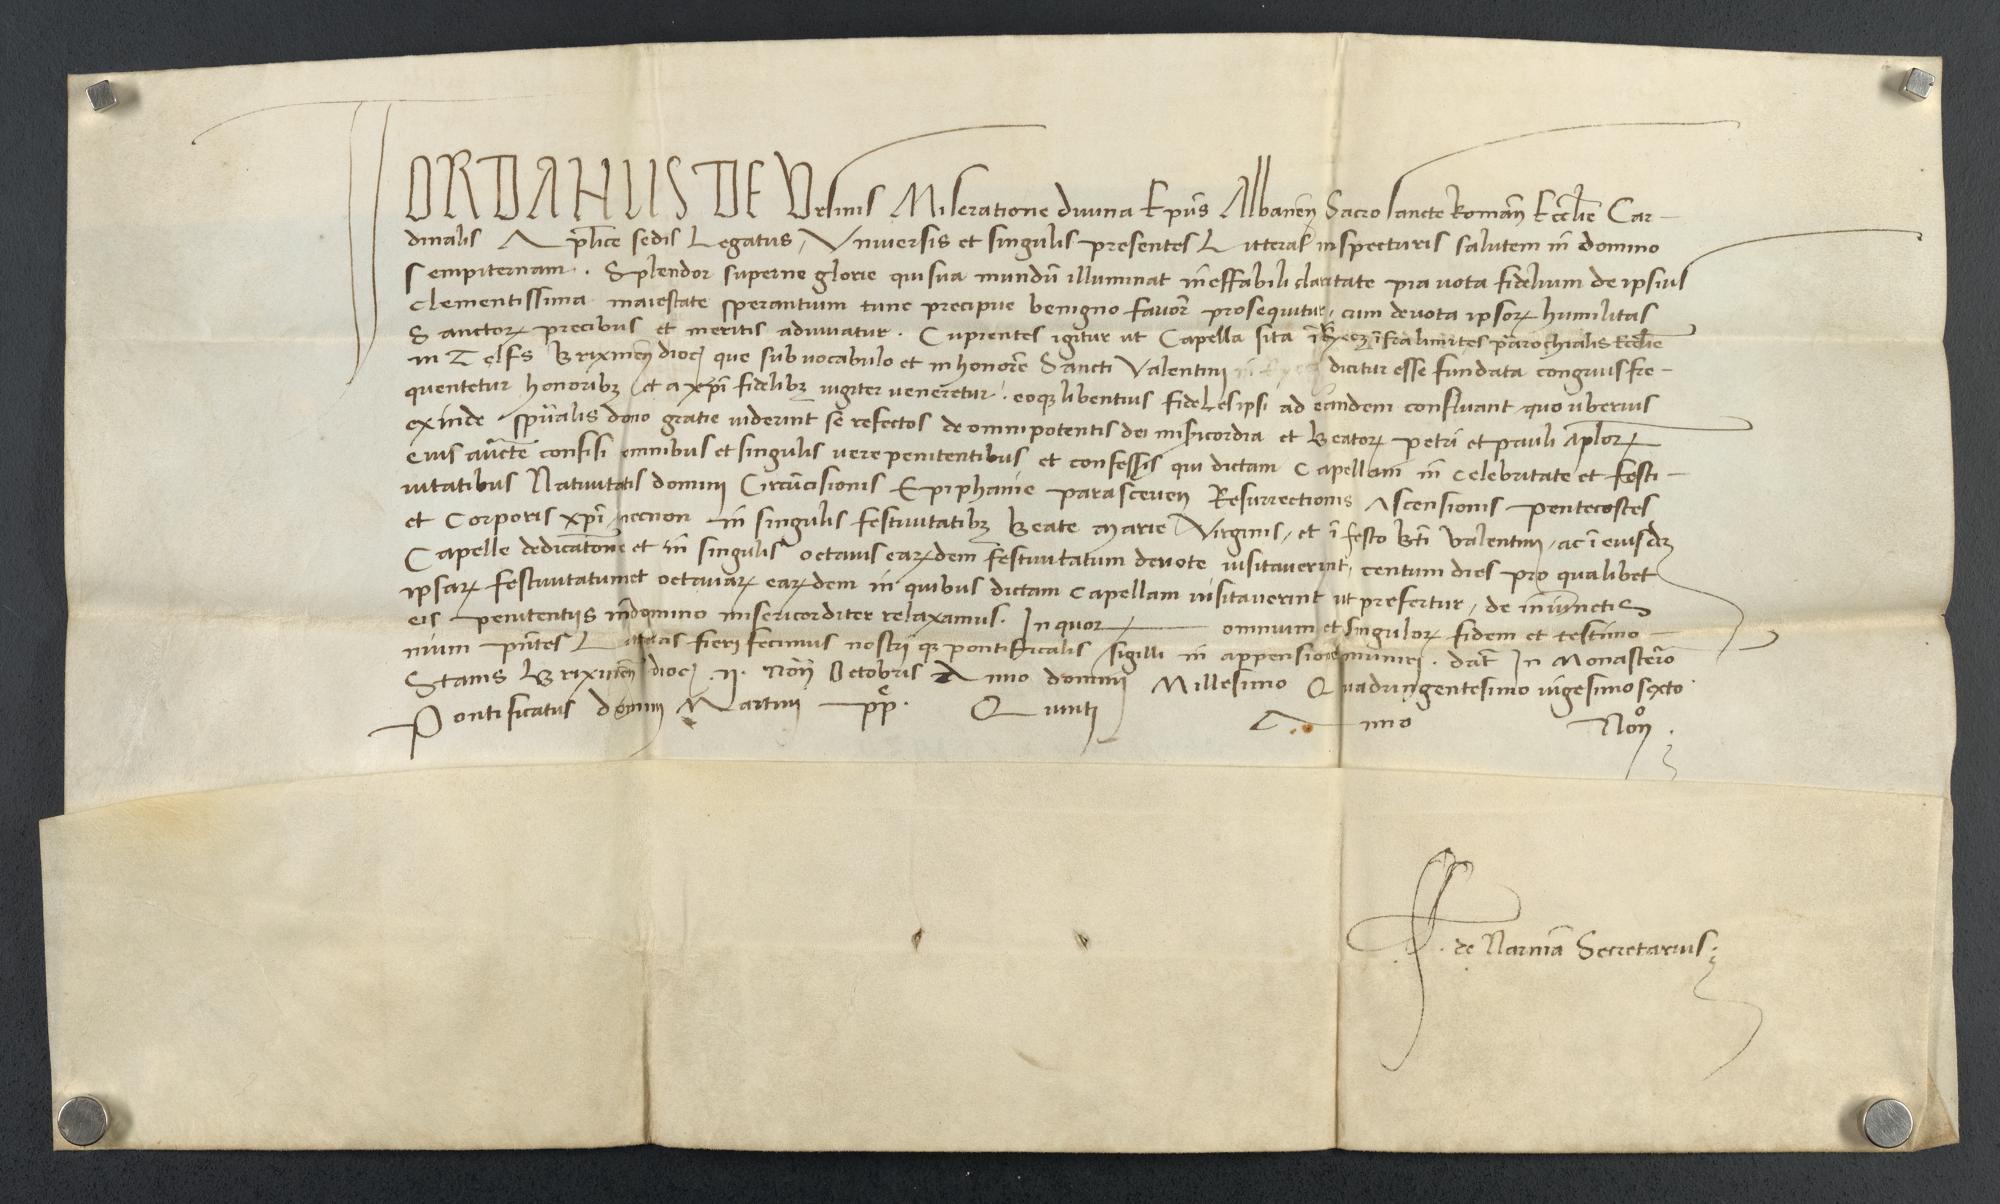 IORDANUS DE Ursinis Miseratione divina Ep̄us Albanen̄ Sacrosancte Roman̄ Eccl̄ie Car-
dinalis Ap̄lice sedis Legatus, Universis et singulis presentes Litteras inspecturis salutem in domino
sempiternam. Splendor superne glorie qui sua mundū illuminat ineffabili claritate pia vota fidelium de ipsius
clementissima maiestate sperantium tunc precipue benigno favor̄ prosequitur, cum devota ipsoꝝ humilitas
Sanctoꝝ precibus et meritis adiuvatur. Cupientes igitur ut Capella sita ī infra limites parrochialis Eccl̄ie
in Telfs Brixinen̄ dioc̄ que sub vocabulo et in honor̄e Sancti Valentini dicitur esse fundata congruis fre-
quentetur honoribꝫ et a xp̄i fidelibꝫ iugiter veneretur: eoqꝫ libentius fideles ipsi ad eandem confluant quo uberius
exinde sp̄ualis dono gratie viderint se refectos de omnipotentis dei misericordia et Beatoꝝ Petri et pauli Ap̄loꝝ
eius auct̄te confisi omnibus et singulis vere penitentibus et confessis qui dictam Capellam in celebritate et festi-
vitatibus Nativitatis domini Circūcisionis Epiphanie parasceven Resurrectionis Ascensionis pentecostes
et Corporis xp̄i necnon in singulis festivitatibꝫ Beate Marie Virginis, et ī festo bt̄i Valentini, ac ī eiusdꝫ
Capelle dedicat̄one et in singulis octavis eaꝝdem festivitatum devote visitaverint, centum dies pro qualibet
ipsaꝝ festivitatum et octavaꝝ eaꝝdem in quibus dictam Capellam visitaverint ut prefertur, de iniunctis
eis penitentiis in domino misericorditer relaxamus. In quoꝝ omnium et singuloꝝ fidem et testimo-
nium pn̄tes Litteras fieri fecimus nostri qꝫ pontificalis sigilli in appensione muniri. dat̄ In Monasterio
Stams Brixinen̄ dioc̄ .II. Non̄ Octobris Anno domini Millesimo Quadringentesimo vigesimosexto
Pontificatus domini Martini pp̄. Quinti Anno Non̄o.
de Narnia Secretarius